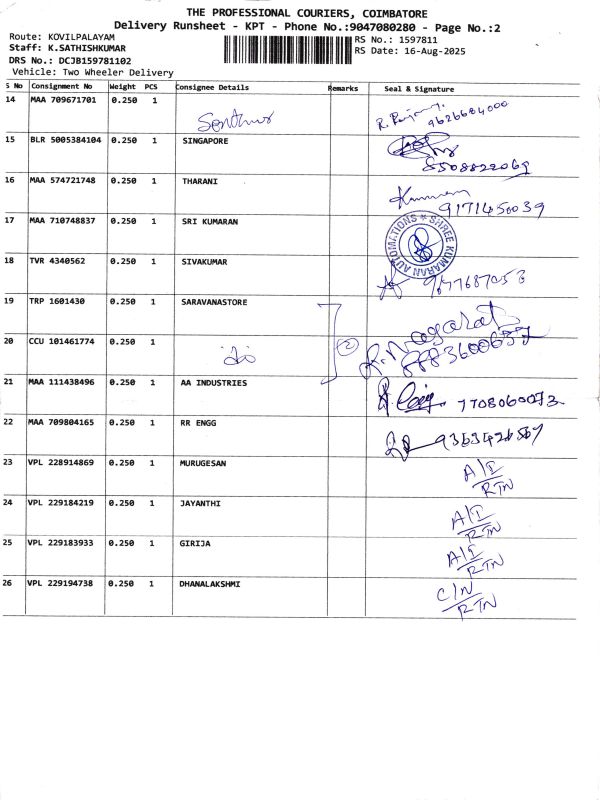 THE PROFESSIONAL COURIERS, COIMBATORE
Delivery Runsheet - KPT - Phone No.:9047080280 - Page No.:2
Route: KOVILPALAYAM
RS No.: 1597811
Staff: K.SATHISHKUMAR
RS Date: 16-Aug-2025
DRS No.: DCJB159781102
Vehicle: Two Wheeler Delivery
S No Consignment No Weight PCS Consignee Details Remarks Seal & Signature
14 MAA 709671701 0.250 1
9626684000
15 BLR 5005384104 0.250 1 SINGAPORE
8508822069
16 MAA 574721748 0.250 1 THARANI
9171450039
17 MAA 710748837 0.250 1 SRI KUMARAN
SHREE KUMARAN AUTOMATIONS
18 TVR 4340562 0.250 1 SIVAKUMAR
9677687053
19 TRP 1601430 0.250 1 SARAVANASTORE
20 CCU 101461774 0.250 1
2
21 MAA 111438496 0.250 1 AA INDUSTRIES
7708060073
22 MAA 709804165 0.250 1 RR ENGG
23 VPL 228914869 0.250 1 MURUGESAN A/I
RTN
24 VPL 229184219 0.250 1 JAYANTHI A/I
RTN
25 VPL 229183933 0.250 1 GIRIJA A/I
RTN
26 VPL 229194738 0.250 1 DHANALAKSHMI C/N
RTN